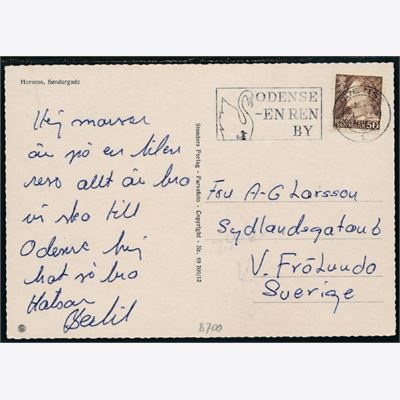 Horsens, Søndergade
ODENSE
-EN REN
BY
ODENSE
DANMARK 50
Stenders Forlag - Farvefoto - Copyright - Nr. 49 209/12
Hej
är på en liten
resa allt är bra
vi ska till
Odense hej
hat så bra
Hälsar
Bertil
Fru A-G Larsson
Sydlandsgatan 6
V. Frölunda
Sverige
8700